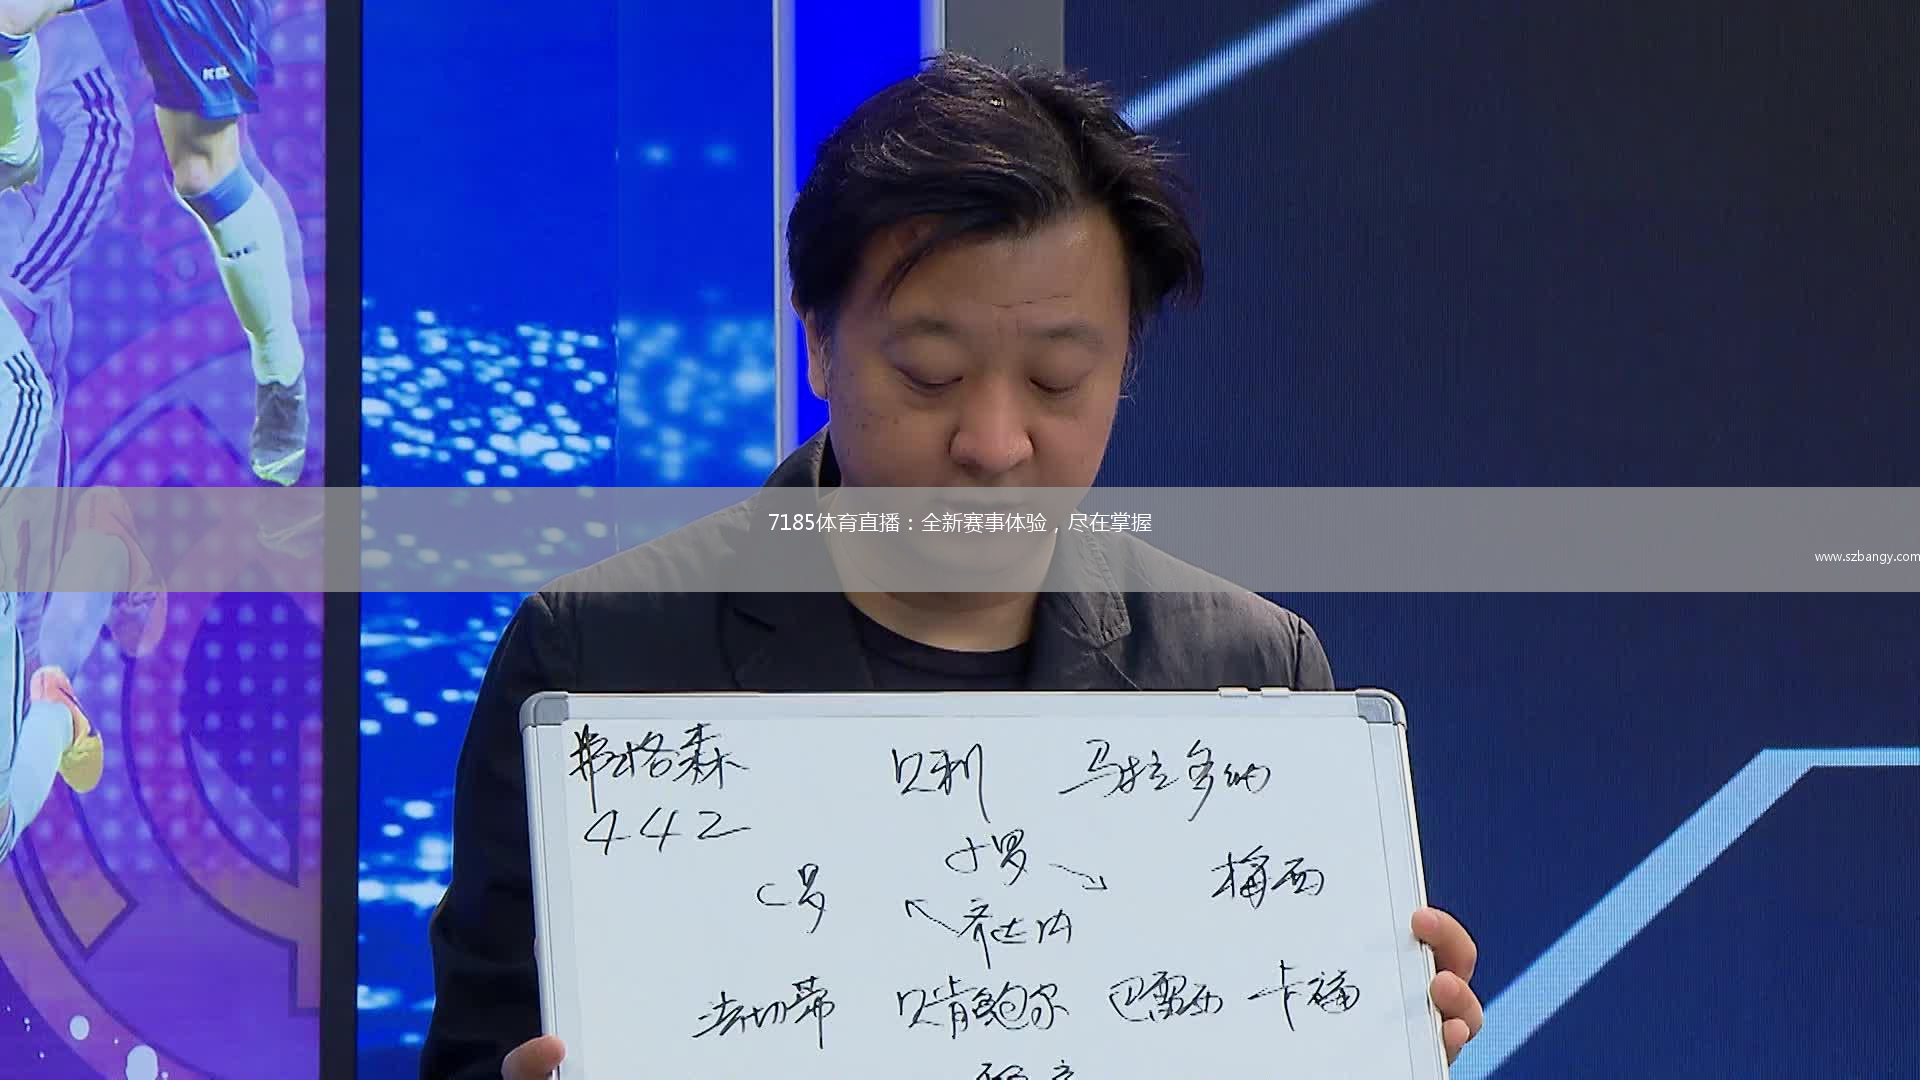 7185体育直播：全新赛事体验，尽在掌握
www.szbangy.com
弗格森 贝利 马拉多纳
442
小罗
C罗 梅西
齐达内
法切蒂 贝肯鲍尔 巴雷西 卡福